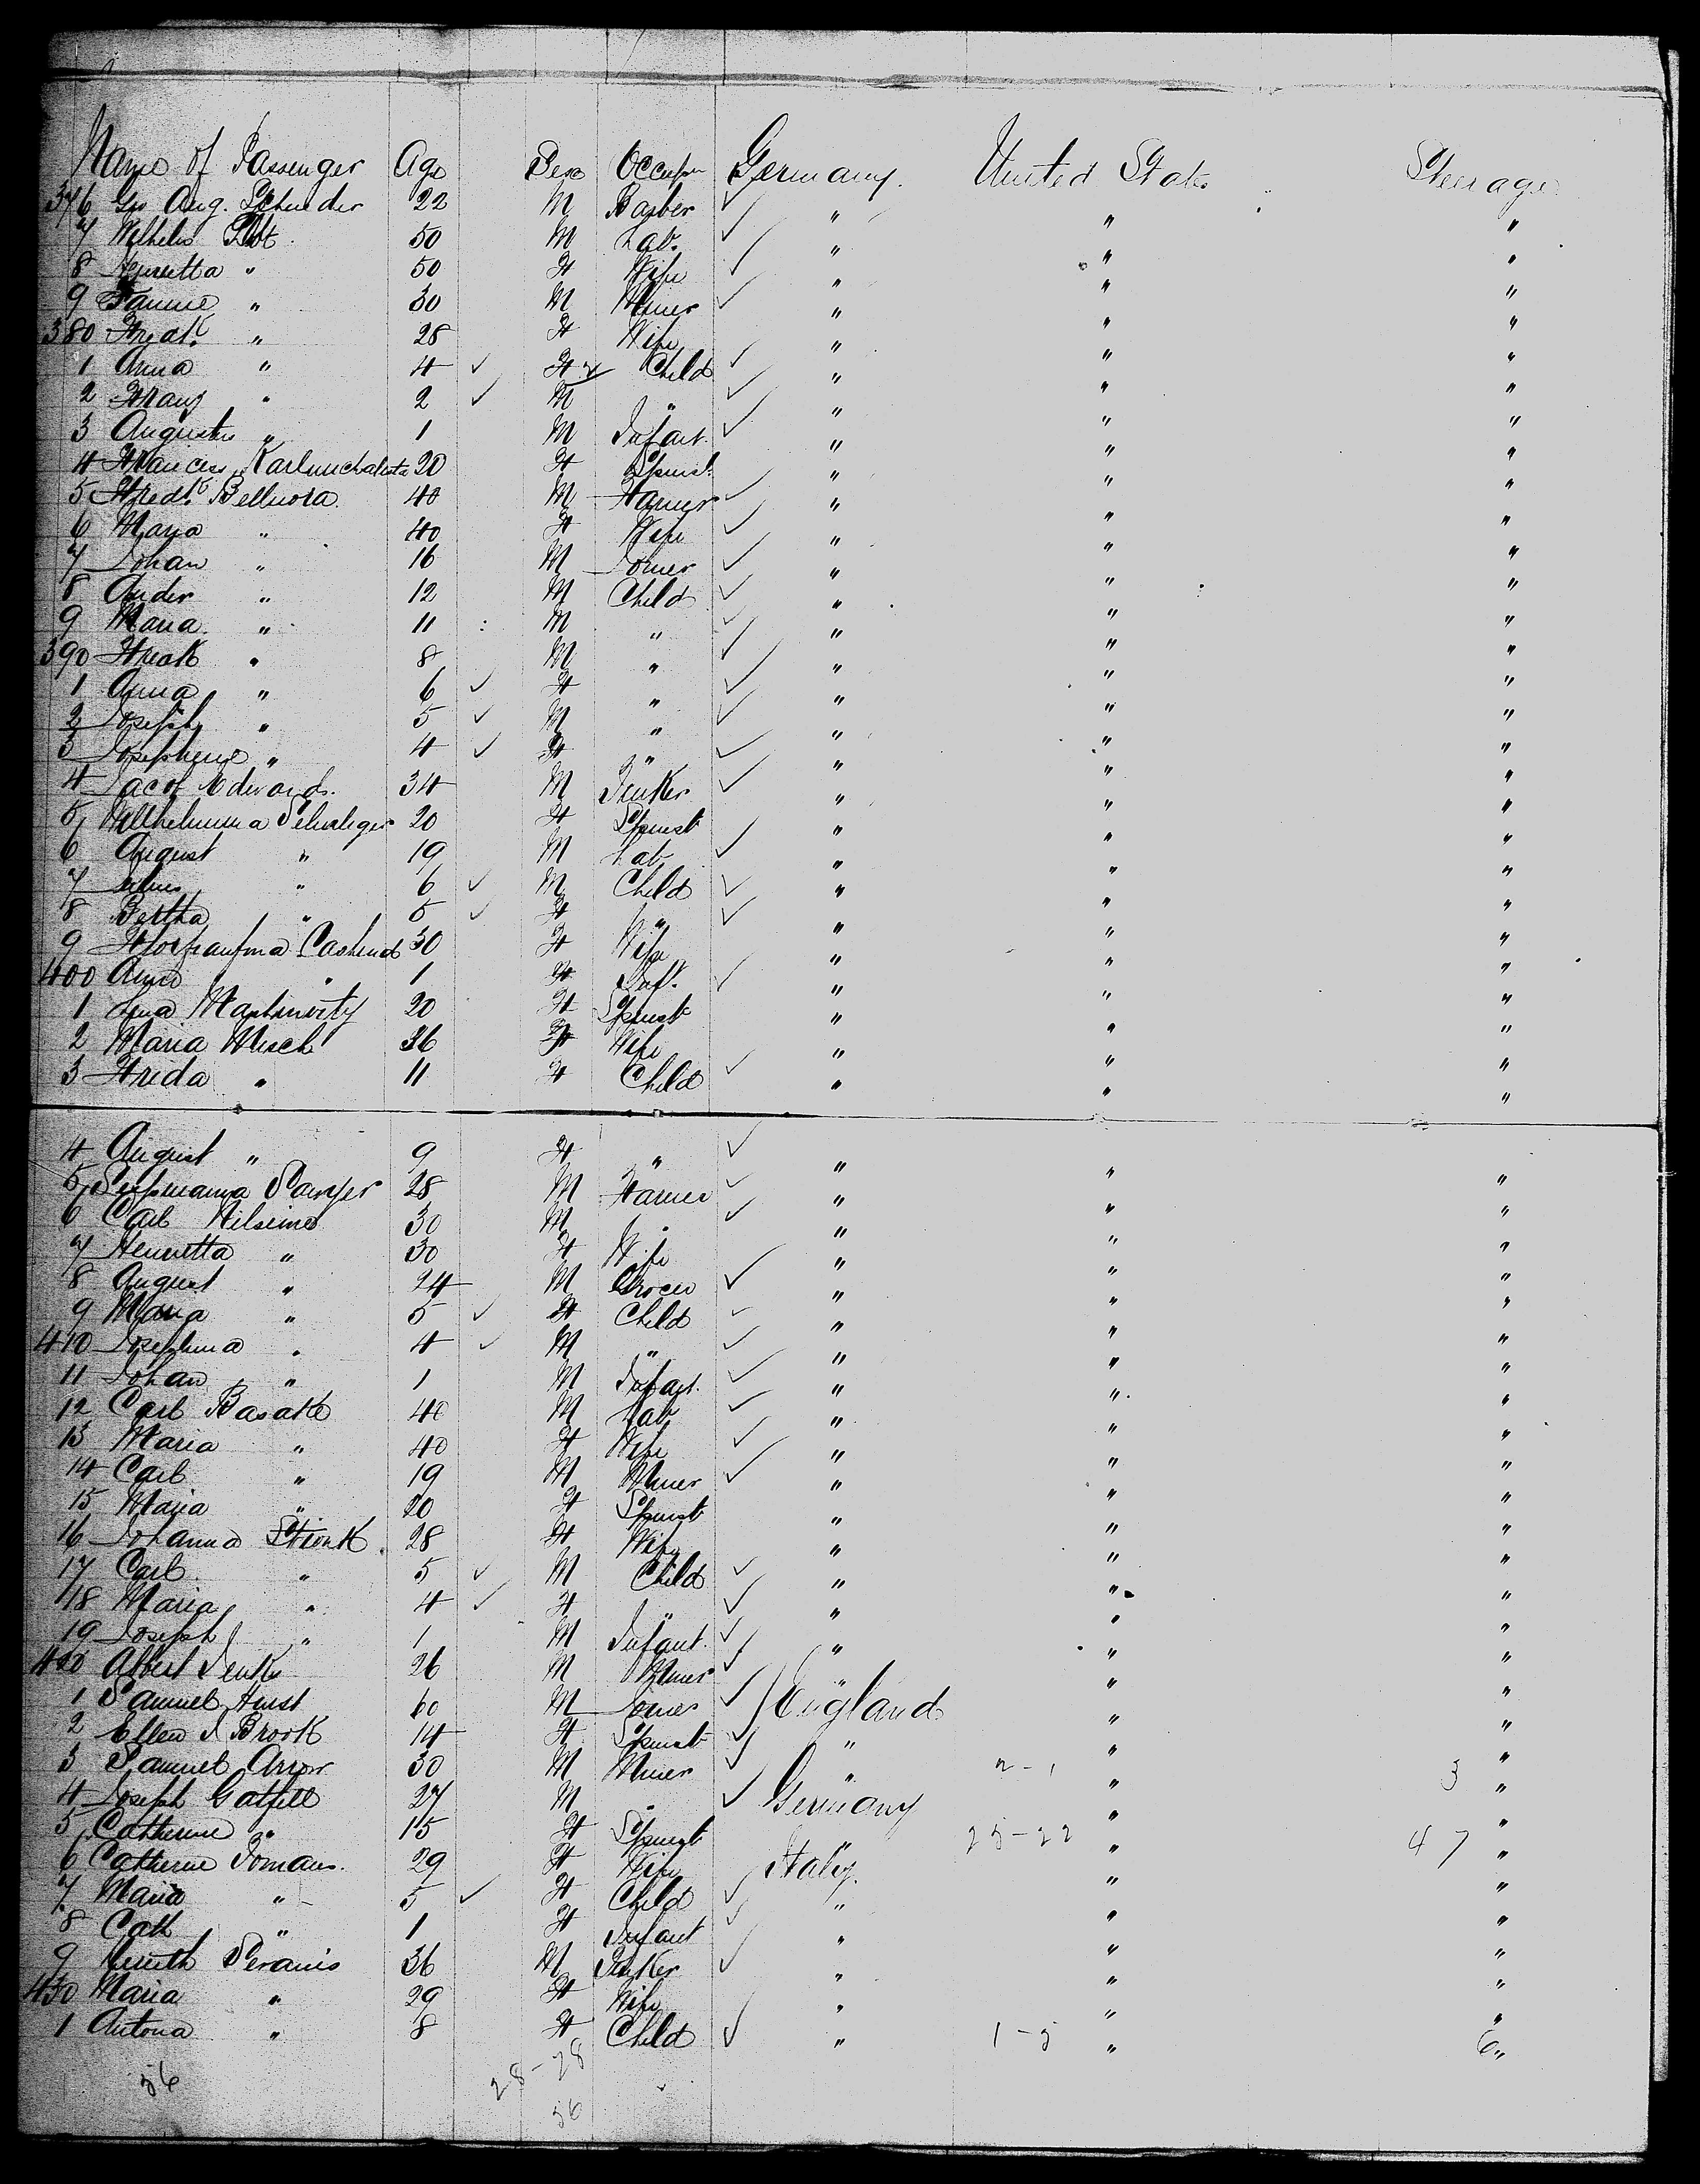 Name of Passenger Age Sex Occupn Germany. United States Steerage
376 Geo Aug. Schneder 22 M Barber " " "
7 Wilhelm 50 M Lab. " " "
8 Henretta " 50 F Wife " " "
9 Fannie " 30 M Miner " " "
380 Fredk " 28 F Wife " " "
1 Anna " 4 F Child " " "
2 Franz " 2 M " " " "
3 Augustus " 1 M Infant. " " "
4 Frances 20 F Spinst. " " "
5 Fredk Bellnora 40 M Farmer " " "
6 Maria " 40 F Wife " " "
7 Johan " 16 M Joiner " " "
8 Ander " 12 M Child " " "
9 Maria " 11 M " " " "
390 Fredk " 8 M " " " "
1 Anna " 6 F " " " "
2 Joseph " 5 M " " " "
3 Josephene " 4 F " " " "
4 Jacob Edwards. 34 M Tinker " " "
5 Willhelmina 20 F Spinst " " "
6 August " 19 M Lab. " " "
7 Julius " 6 M Child " " "
8 Bertha " 5 F " " " "
9 30 F Wife " " "
400 Anna " 1 F Inf. " " "
1 Lina 20 F Spinst " " "
2 Maria Misch 36 F Wife " " "
3 Frida " 11 F Child " " "
4 August " 9 F " " " "
5 Sawyer 28 M Farmer " " "
6 Carl 30 M " " " "
7 Henrietta " 30 F Wife " " "
8 August " 24 M Grocer " " "
9 Maria " 5 F Child " " "
410 Josephina " 4 M " " " "
11 Johan " 1 M Infant. " " "
12 Carl Basake 40 M Lab " " "
13 Maria " 40 F Wife " " "
14 Carl " 19 M Miner " " "
15 Maria " 20 F Spinst " " "
16 Johanna Stronk. 28 F Wife " " "
17 Carl " 5 M Child " " "
18 Maria " 4 F " " " "
19 Joseph " 1 M Infant. " " "
420 Albert Jenks 26 M Miner " " "
1 Samuel Hurst 60 M Joiner England " "
2 Ellen J Brook 14 F Spinst " " "
3 Samuel Arror 30 M Miner " 2-1 " 3 "
4 Joseph Gatfill 27 M " Germany " "
5 Catherine " 15 F Spinst " 25-22 " 47 "
6 Catherine Tomans. 29 F Wife Italy. " "
7 Maria " 5 F Child " " "
8 Cath " 1 F Infant " " "
9 Peranis 36 M Tinker " " "
430 Maria " 29 F Wife " " "
1 Antona " 8 F Child " 1-5 " 6 "
56 28-28
56